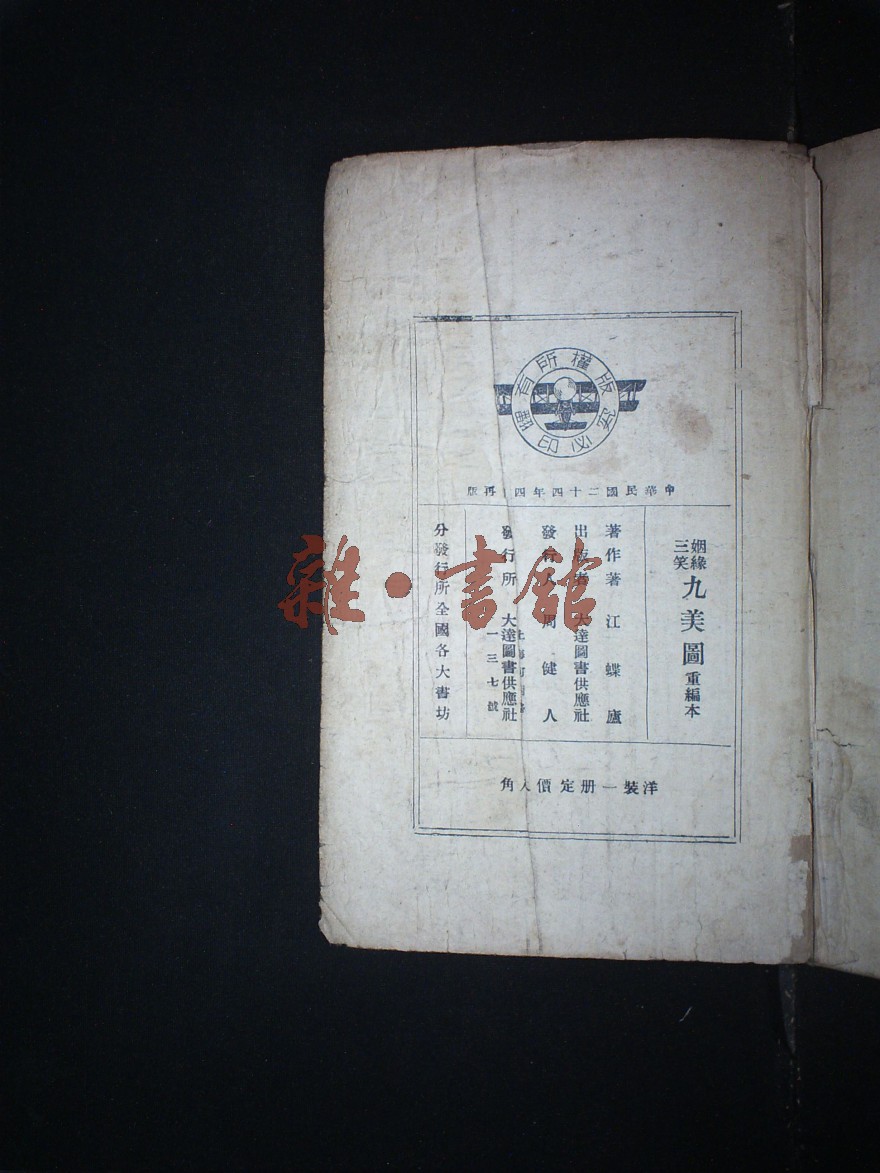 版權所有
翻印必究
中華民國二十四年四 再版
三笑姻緣
九美圖
重編本
著作者 江蝶廬
出版者 大達圖書供應社
發行人 周健人
發行所 大達圖書供應社
上海
一三七號
分發行所 全國各大書坊
洋裝一册定價八角
雜·書館